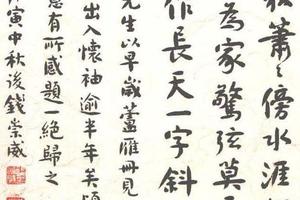 蕭々傍水涯
為家驚弦莫
作長天一字斜
先生以早歲蘆雁冊見
出入懷袖逾半年矣
有所感題一絕歸之
寅中秋後錢崇威